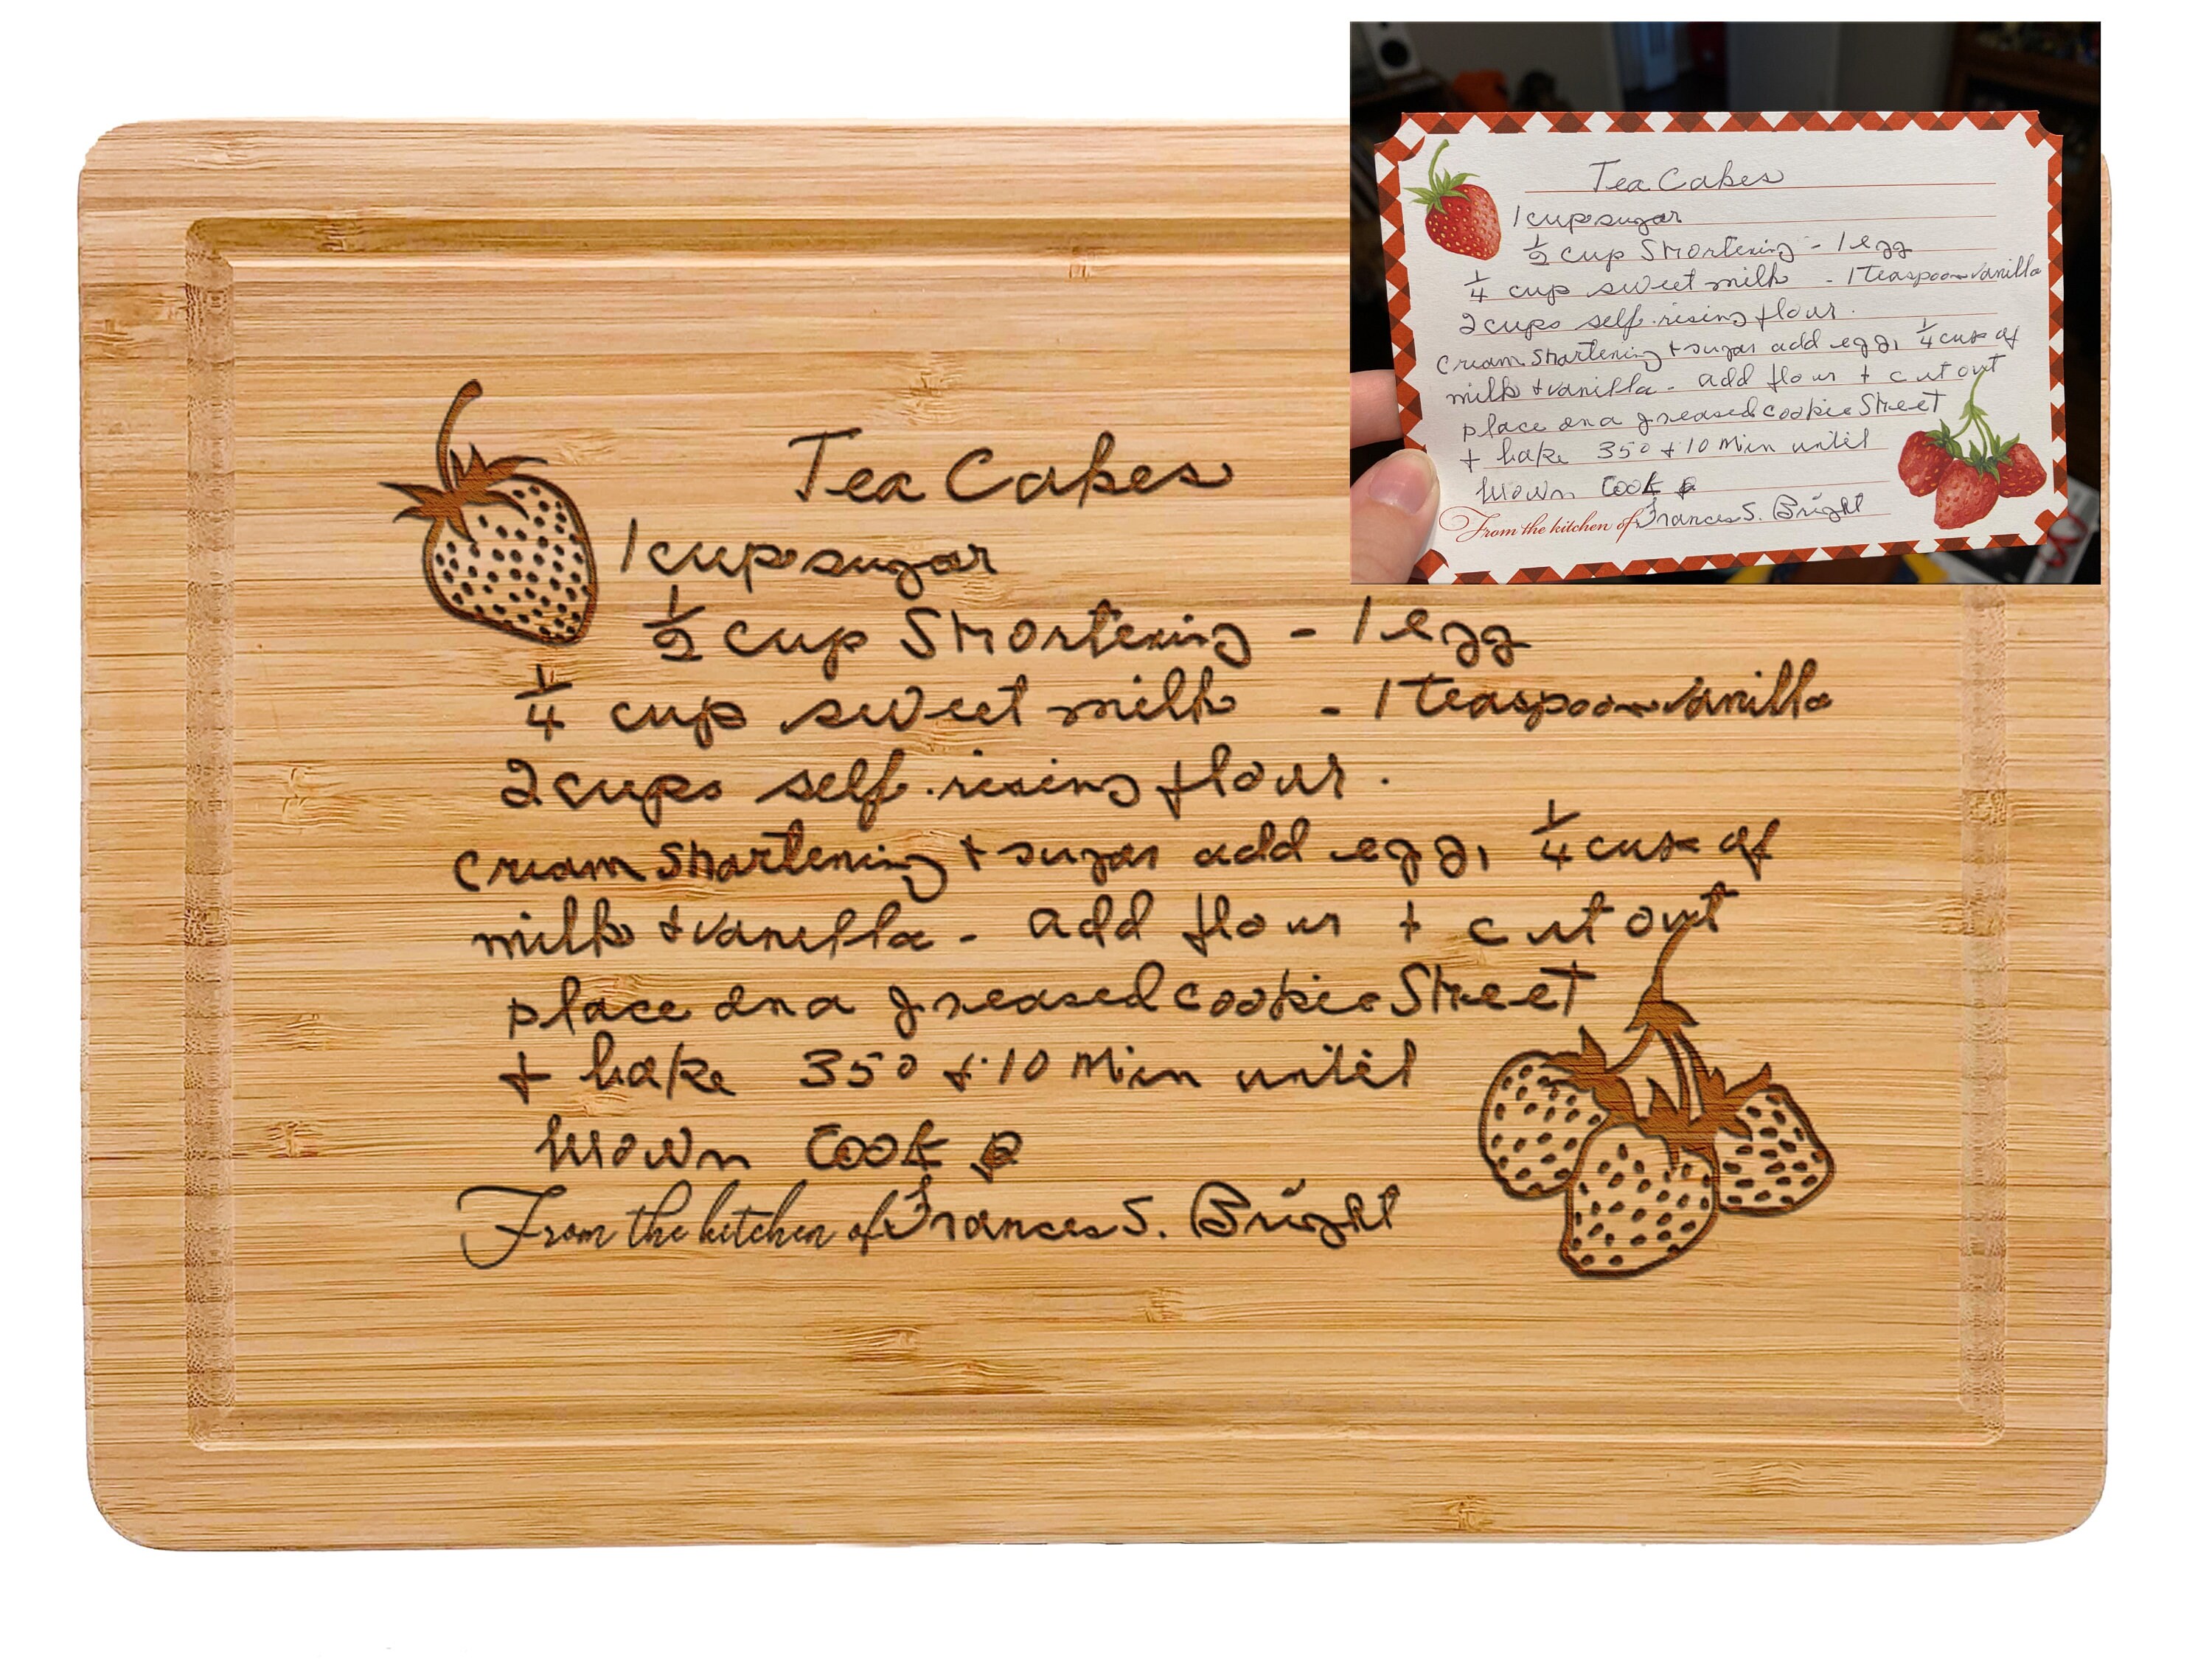 Tea Cakes
1 cup sugar
1/2 cup Shortening - 1 egg
1/4 cup sweet milk - 1 teaspoon vanilla
2 cups self-rising flour.
Cream Shortening + sugar add egg, 1/4 cup of
milk + vanilla - add flour + cut out
place on a greased cookie Sheet
+ bake 350 + 10 Min until
brown Cook
From the kitchen of Frances S. Bright
Tea Cakes
1 cup sugar
1/2 cup Shortening - 1 egg
1/4 cup sweet milk - 1 teaspoon vanilla
2 cups self-rising flour.
Cream Shortening + sugar add egg, 1/4 cup of
milk + vanilla - add flour + cut out
place on a greased cookie Sheet
+ bake 350 + 10 Min until
brown Cook
From the kitchen of Frances S. Bright